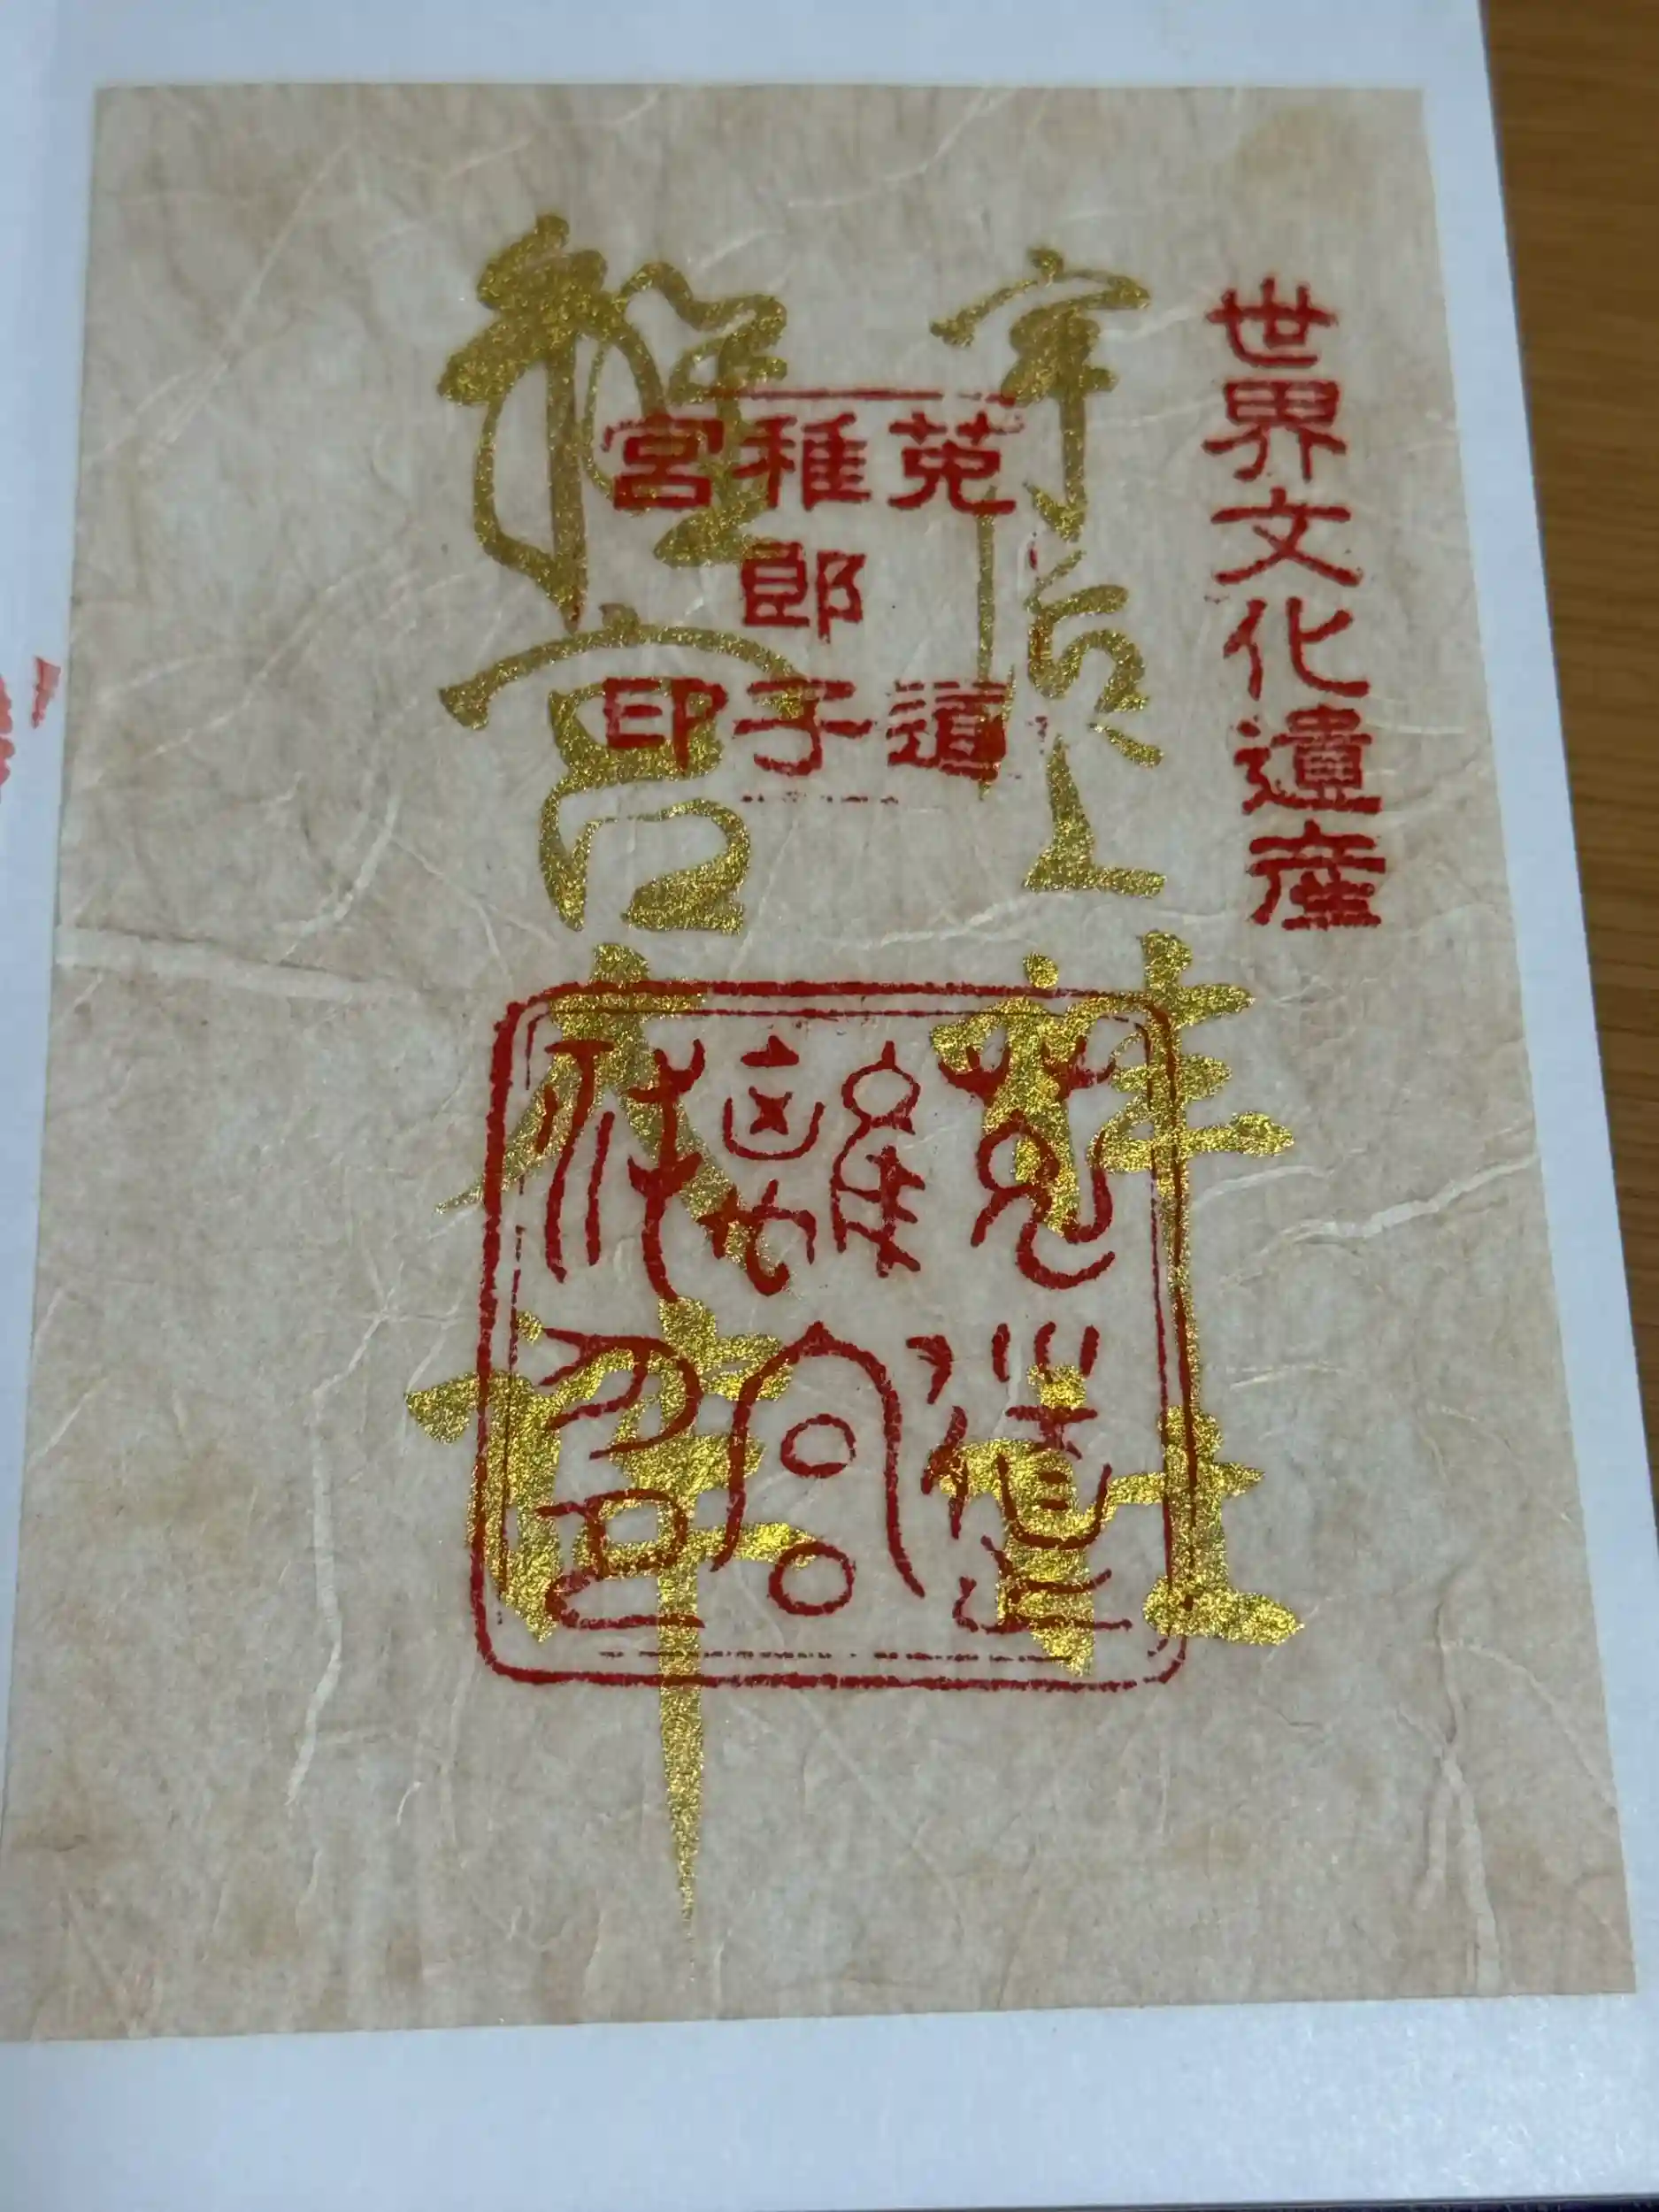 世界文化遺産
宇治上神社
離宮大神
菟道
稚郎子
宮印
菟道
離宮
印